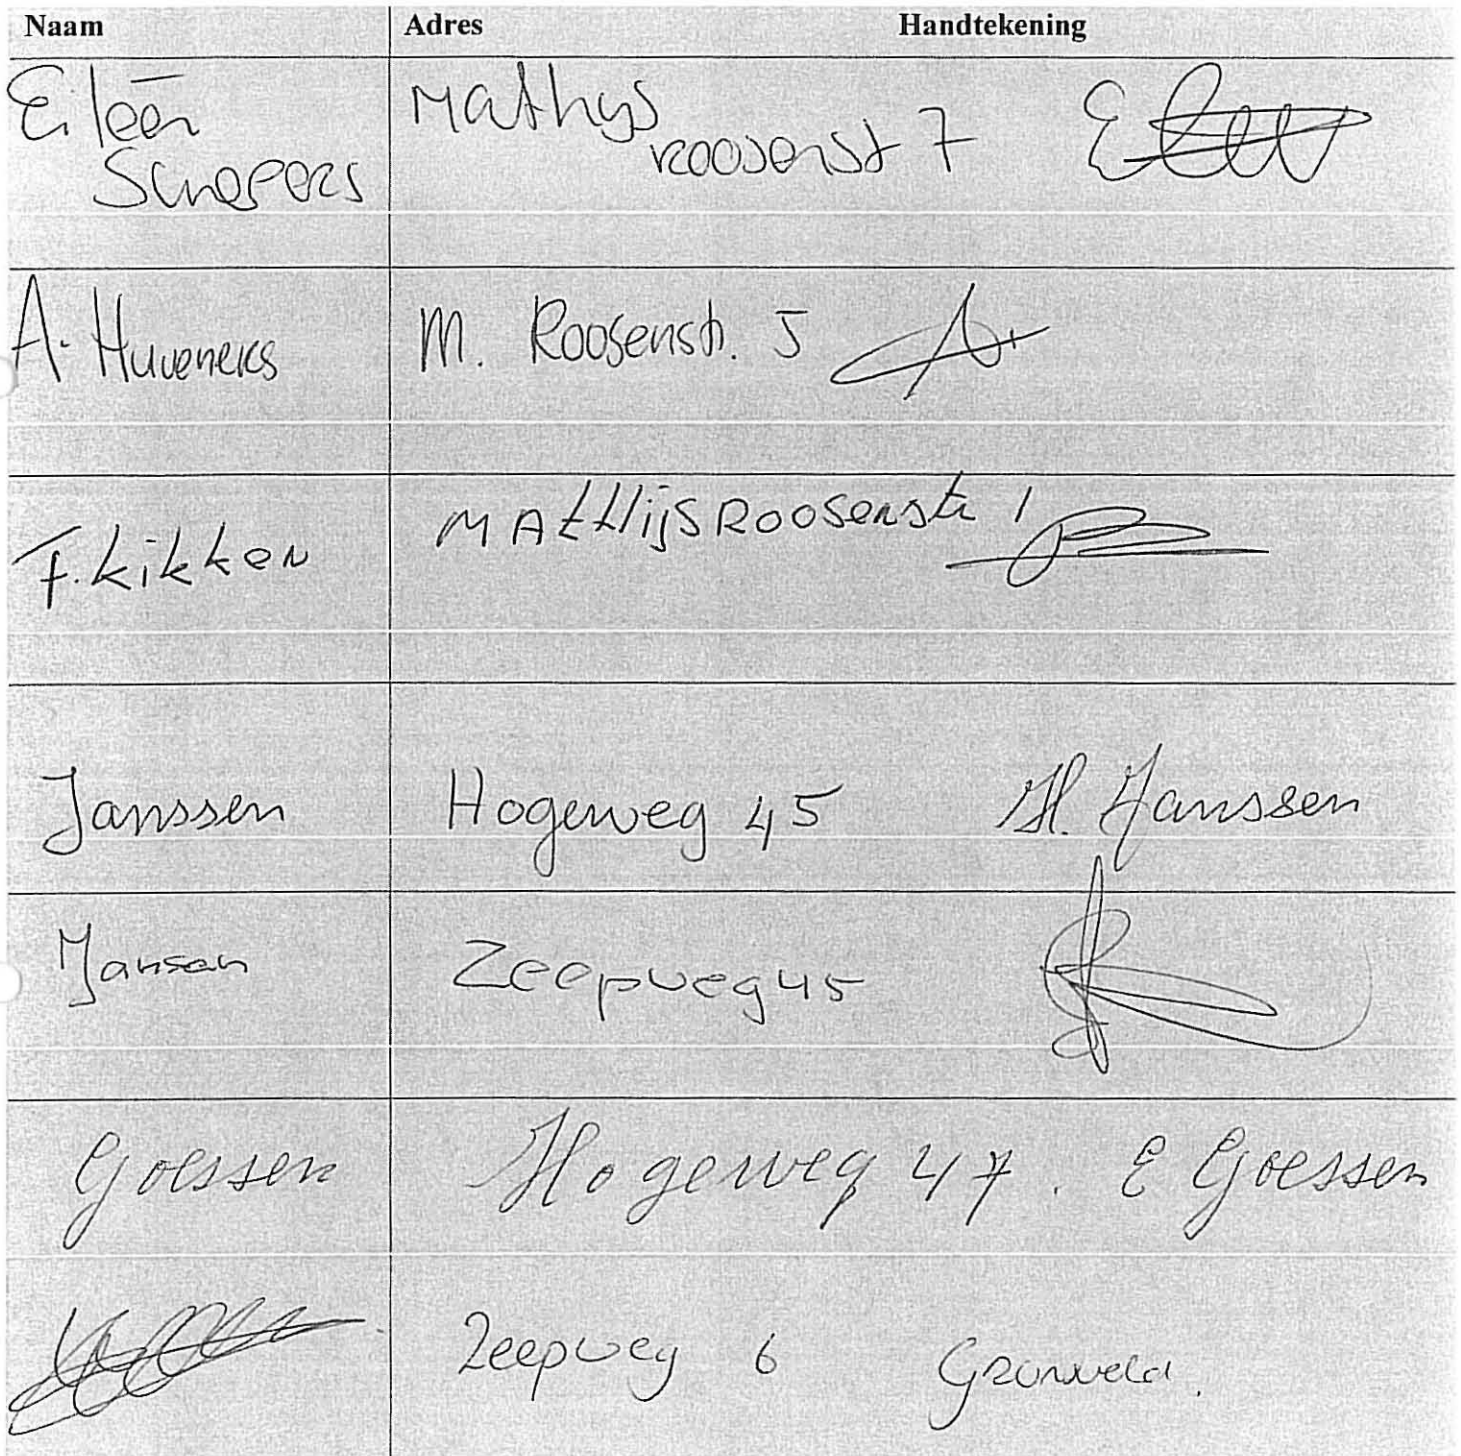 Naam Adres Handtekening
Eileen Mathys
Schepers Roosenst 7
A. Huveneers M. Roosenstr. 5
F. kikken MAtthijsRoosenstr 1
Janssen Hogeweg 45 H. Janssen
Jansen Zeepweg 45
Goessen Hogeweg 47. E Goessen
Zeepweg 6